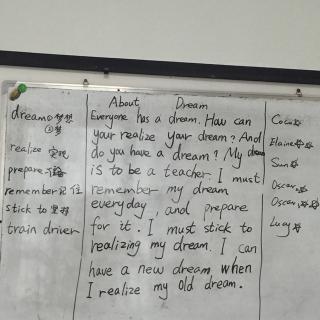 dream ①梦想
②梦
realize 实现
prepare 准备
remember 记住
stick to 坚持
train driver
About Dream
Everyone has a dream. How can
your realize your dream? And
do you have a dream? My dream
is to be a teacher. I must
remember my dream
everyday, and prepare
for it. I must stick to
realizing my dream. I can
have a new dream when
I realize my old dream.
Coco
Elaine
Sun
Oscar
Oscar
Lucy